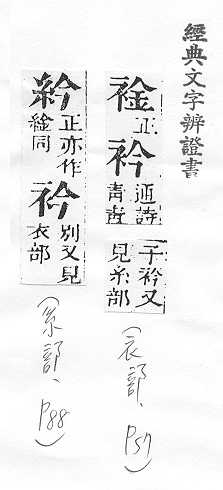 經典文字辨證書
䘳正
衿通詩
青青
子衿又
見糸部
(衣部、P57)
紟正亦作
縊同
衿別又見
衣部
(糸部、P88)